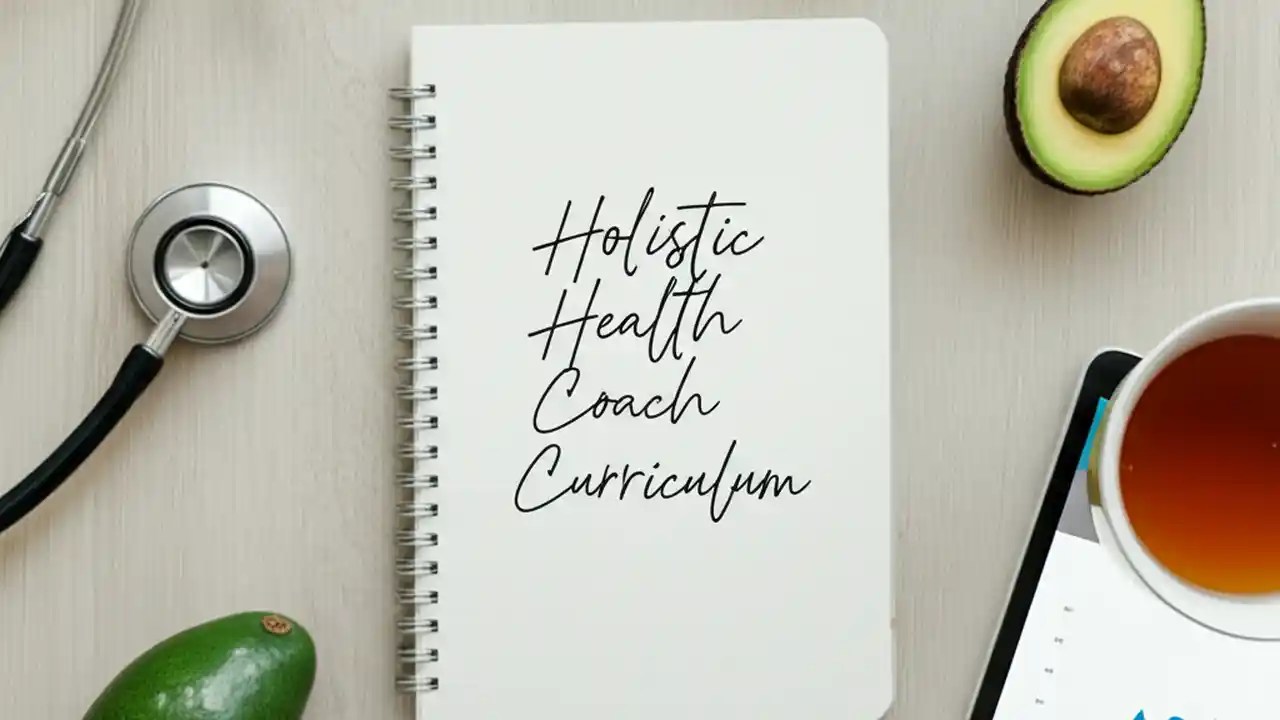 Holistic
Health
Coach
Curriculum